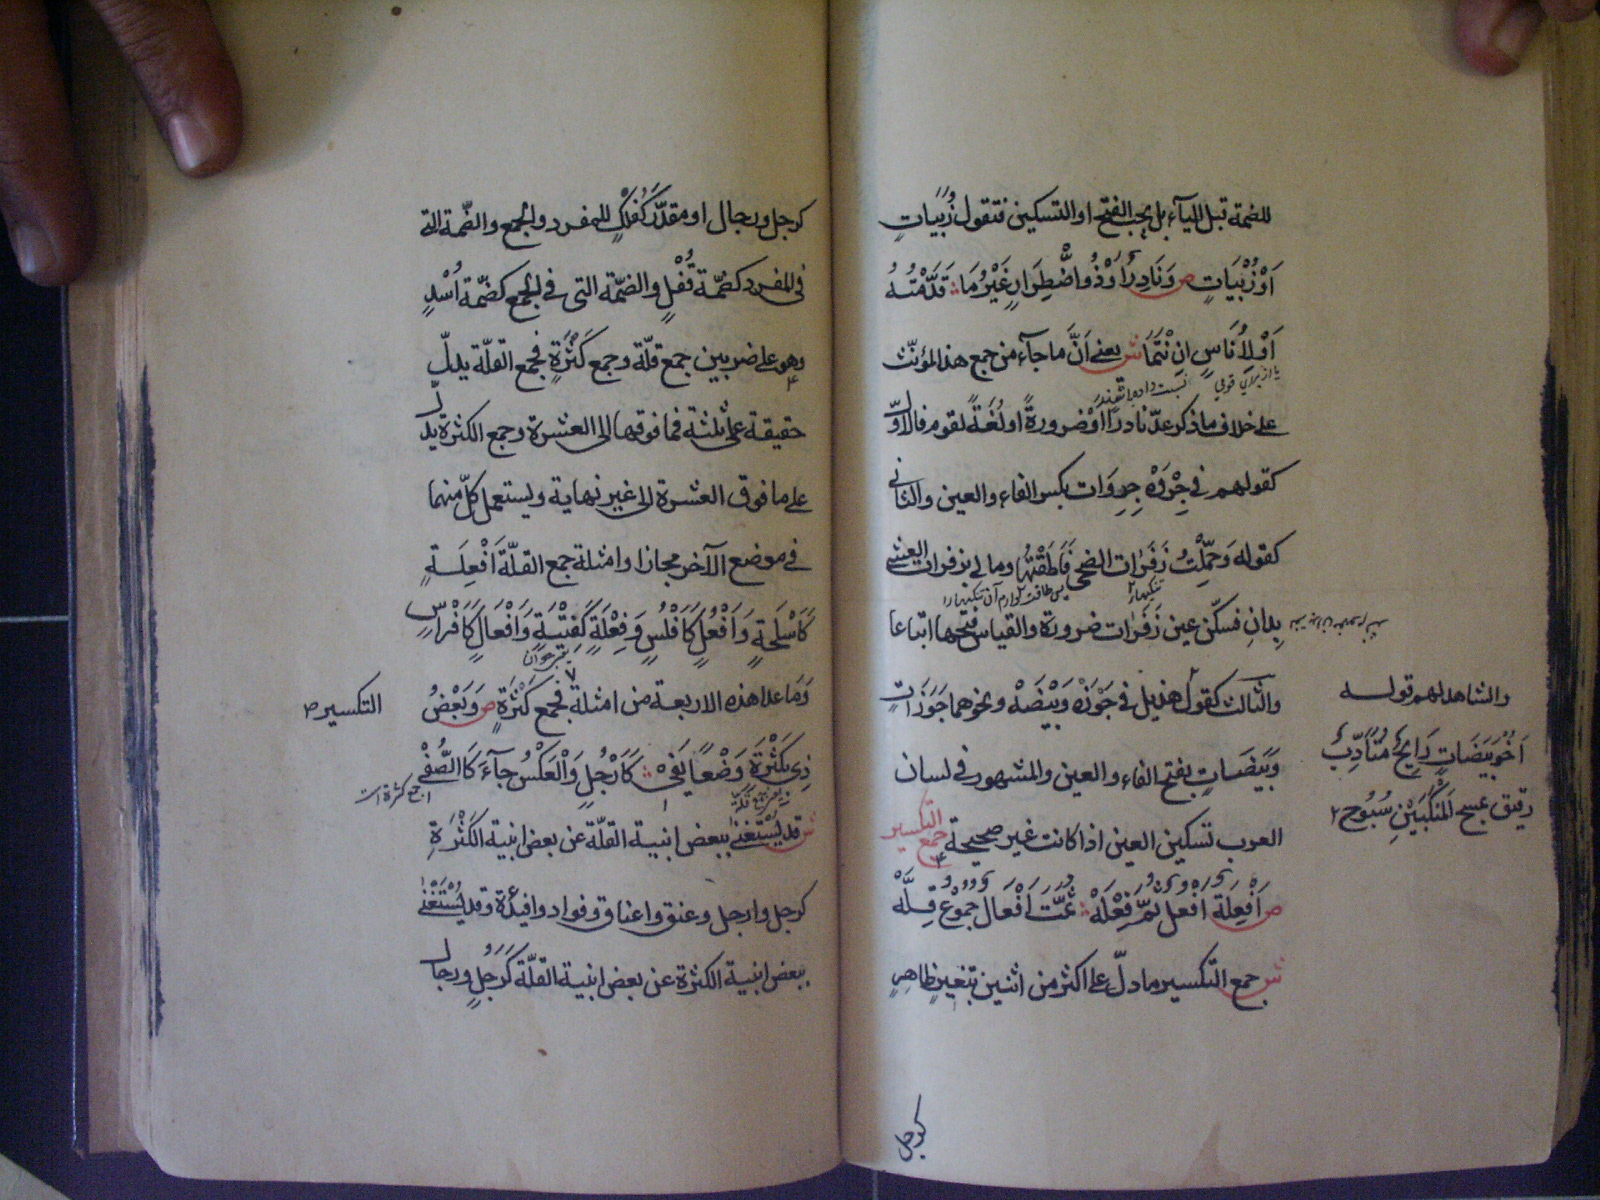 للضمة قبل الياء بل يجب الفتح او التسكين فتقول زُبَيات
اَوْ زُبْيَاتٍ ص وَنَادِرٌ اَوْ ذُو اضْطِرَارٍ غَيْرُ مَا قَدَّمْتُهُ
اَوْ لِاُنَاسٍ انْتَمَا ش يعنے اَنَّ ما جآء من جمع هذا المؤنّث
يا از براي قومي نسبت داده اند
على خلاف ما ذكر عدّ نادرًا اَوْ ضرورةً او لُغَةً لقوم فالاوّل
كقولهم في جِرْوَةْ جِرِوَات بكسر الفاء والعين والثاني
كقوله وَحُمِّلْتُ زَفْرَات الضحى فَاَطَقْتُهَا وما لي بزفرات العشي
يدانِ فسكّن عين زَفْرات ضرورة والقياس فتحها اتباعا
والثالث كقول هذيل في جَوْزَةْ وَبَيْضَةْ ونحوهما جَوَزَاتٍ
وَبَيَضَاتٍ بفتح الفاء والعين والمشهور في لسان
العرب تسكين العين اذا كانت غير صحيحة جمع التكسير
ص اَفْعِلَةٌ اَفْعُلُ ثُمَّ فِعْلَهْ ثُمَّتَ اَفْعَالٌ جُمُوْعُ قِلَّهْ
ش جمع التكسير ما دلّ على اكثر من اثنين بتغيير ظاهرٍ
كرجل
والشاهد لهم قوله
اَخُوْ بَيَضَاتٍ رَايِحٌ مُتَأَدِّبٌ
رفيق بمسح الْمَنْكِبَيْنِ سَبُوْح
كرجل ورجال او مقدّر كَفُلْكٍ للمفرد والجمع والضّمة التي
في المفرد كضمّة قُفْلٍ والضمّة التى في الجمع كضمّة اُسْدٍ
وهو على ضربين جمع قلّة وجمع كَثْرَةٍ فجمع القلّة يدلّ
حقيقة على ثلثة فما فوقها الى العشرة وجمع الكثرة يدل
على ما فوق العشرة الى غير نهاية ويستعمل كلّ منهما
في موضع الآخر مجازا وامثلة جمع القلّة اَفْعِلَةٍ
كَاَسْلِحَةٍ وَاَفْعُلٍ كَاَفْلُسٍ وَفِعْلَةٍ كَفِتْيَةٍ وَاَفْعَالٍ كَاَفْرَاسٍ
وَمَا عدا هذه الاربعة من امثلة فجمع كَثْرَةٍ ص وَبَعْضُ
التكسير
ذِيْ بِكَثْرَةَ وَضْعًا يَفِيْ كَاَرْجُلٍ وَالْعَكْسُ جَآءَ كَالصُّفِيْ
جمع كثرة است
ش قد يُسْتَغْنٰے ببعض ابنية القلّة عن بعض ابنية الكَثْرَةِ
كرجل وارجل وعنق واعناق وفواد وافيدة وقد يُسْتَغْنٰے
ببعض ابنية الكثرة عن بعض ابنية القلّة كَرَجُلٍ ورجال